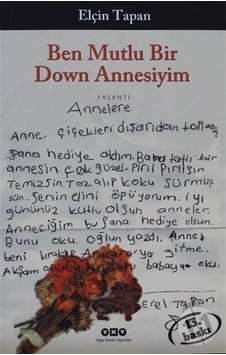 Elçin Tapan
Ben Mutlu Bir
Down Annesiyim
YAŞANTI
Annelere
Anne, çiçekleri dışarıdan topladım
Sana hediye aldım. Bana tatlı bir
annesin çok güzel. Pırıl pırılsın
Temizsin. Toz alıp koku sürmüş
sün. Senin elini öpüyorum. iyi
gününüz kutlu olsun anneler.
Anneciğim bu sana hediye olsun.
Bunu oku. Oğlun yazdı. Anne
beni bırakıp Ankara'ya gitme.
Akşam olunca babaya oku.
Erel Tapan
13. baskı
YKY
Yapı Kredi Yayınları